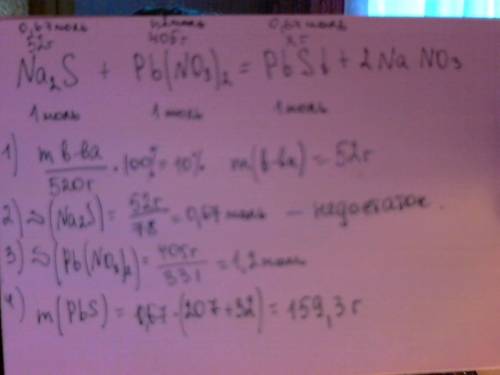 0,67 моль 1,2 моль 0,67 моль
52г 405г xг
Na₂S + Pb(NO₃)₂ = PbS↓ + 2NaNO₃
1 моль 1 моль 1 моль
1) m в-ва / 520г · 100% = 10% m(в-ва) = 52г
2) ν(Na₂S) = 52г / 78 = 0,67 моль – недостаток.
3) ν(Pb(NO₃)₂) = 405г / 331 = 1,2 моль
4) m(PbS) = 0,67 · (207 + 32) = 159,3 г